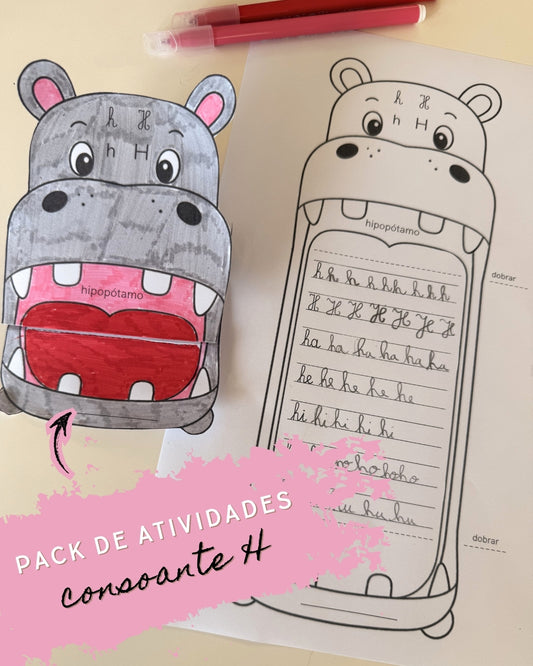 h H
h H
hipopótamo
h H
h H
hipopótamo
dobrar
h h h h h h h h h
H H H H H H H
ha ha ha ha ha ha
he he he he he
hi hi hi hi hi
ho ho ho ho
hu hu
dobrar
PACK DE ATIVIDADES
consoante H